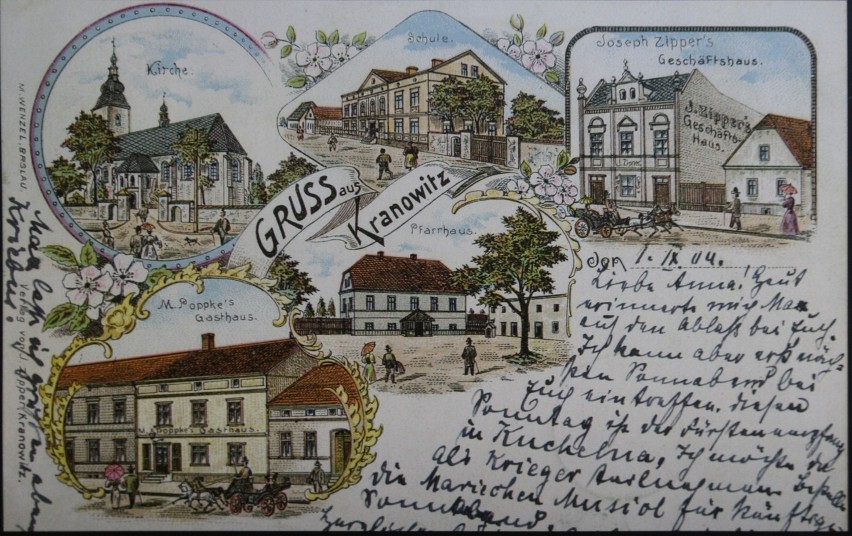 Kirche.
Schule.
Joseph Zipper's
Geschäftshaus.
J. Zipper's
Geschäfts-
Haus.
J. Zipper
GRUSS aus
Kranowitz
Pfarrhaus.
M. Poppke's
Gasthaus.
M. Poppke's Gasthaus.
M. WENZEL, BRSLAU.
Verlag von J. Zipper, Kranowitz.
Den 1. IX 04.
Liebe Anna! Heut
erinnerte mich Max
auf den Ablaß bei Euch
Ich kann aber erst näch-
sten Sonnabend bei
Euch eintreffen. Diesen
Sonntag ist der Fürstenempfang
in Kuchelna, Ich möchte da
als Krieger
die Musiol für künftigen
Sonnabend
Herzliche